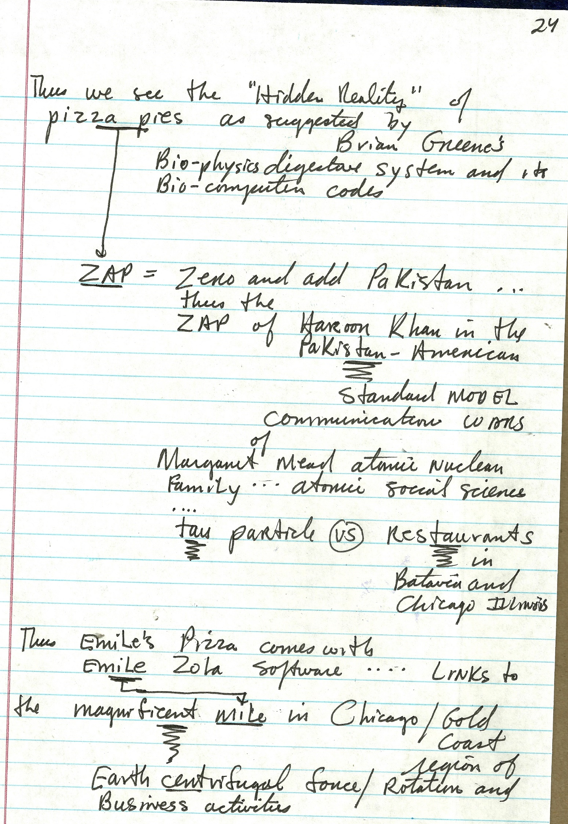 24
Thus we see the "Hidden Reality" of
pizza pies as suggested by
Brian Greene's
Bio-physics digestive system and its
Bio-computer codes
ZAP = Zero and add Pakistan ...
thus the
ZAP of Haroon Khan in the
Pakistan-American
Standard MODEL
Communication WARS
of
Margaret Mead atomic nuclear
Family ... atomic social science
....
tau particle VS Restaurants
in
Batavia and
Chicago Illinois
Thus Emile's Pizza comes with
Emile Zola software ..... LINKS to
the magnificent mile in Chicago/Gold
Coast
region of
Earth centrifugal force/Rotation and
Business activities